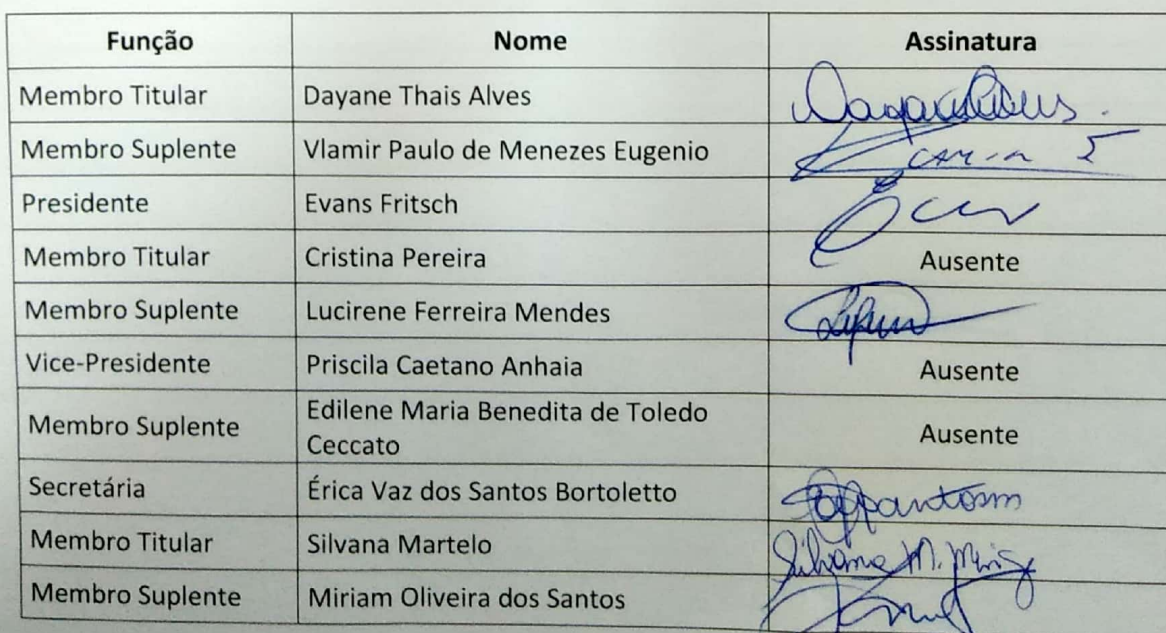 Função Nome Assinatura
Membro Titular Dayane Thais Alves
Membro Suplente Vlamir Paulo de Menezes Eugenio
Presidente Evans Fritsch
Membro Titular Cristina Pereira Ausente
Membro Suplente Lucirene Ferreira Mendes
Vice-Presidente Priscila Caetano Anhaia Ausente
Membro Suplente Edilene Maria Benedita de Toledo
Ceccato Ausente
Secretária Érica Vaz dos Santos Bortoletto
Membro Titular Silvana Martelo Silvana M.
Membro Suplente Miriam Oliveira dos Santos